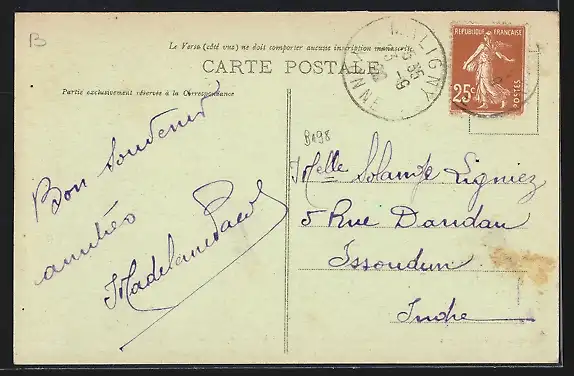 B
Le Verso (côté vue) ne doit comporter aucune inscription manuscrite
CARTE POSTALE
Partie exclusivement réservée à la Correspondance
MALIGNY
YONNE
RÉPUBLIQUE FRANÇAISE
25c
POSTES
B198
Bon Souvenir
amitiés
Madeleine
Melle Solange Ligniez
5 Rue Dandau
Issoudun
Indre